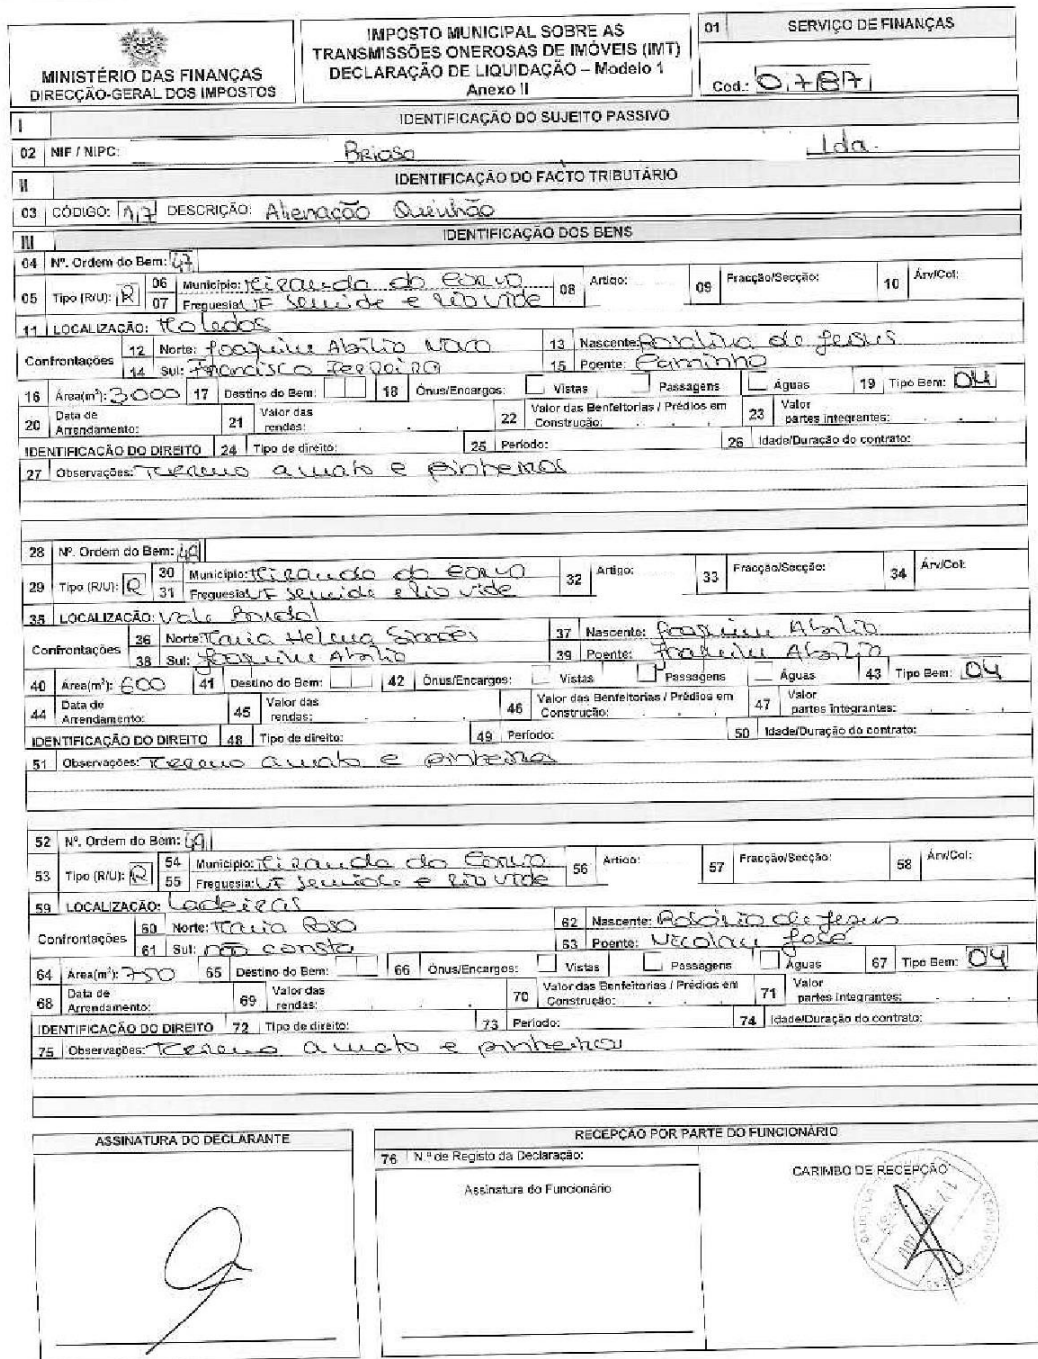 MINISTÉRIO DAS FINANÇAS
DIRECÇÃO-GERAL DOS IMPOSTOS
IMPOSTO MUNICIPAL SOBRE AS
TRANSMISSÕES ONEROSAS DE IMÓVEIS (IMT)
DECLARAÇÃO DE LIQUIDAÇÃO – Modelo 1
Anexo II
01 SERVIÇO DE FINANÇAS
Cod.: 0787
I IDENTIFICAÇÃO DO SUJEITO PASSIVO
02 NIF / NIPC: Brioso Lda.
II IDENTIFICAÇÃO DO FACTO TRIBUTÁRIO
03 CÓDIGO: 17 DESCRIÇÃO: Alienação Quinhão
III IDENTIFICAÇÃO DOS BENS
04 Nº. Ordem do Bem: 47
05 Tipo (R/U): R 06 Município: Miranda do Corvo 08 Artigo: 09 Fracção/Secção: 10 Árv/Col:
07 Freguesia: UF Semide e Rio Vide
11 LOCALIZAÇÃO:
Confrontações 12 Norte: Joaquim Abílio 13 Nascente: de Jesus
14 Sul: Francisco Ferreira 15 Poente: Caminho
16 Área(m²): 3000 17 Destino do Bem: 18 Ónus/Encargos: Vistas Passagens Águas 19 Tipo Bem: 04
20 Data de Arrendamento: 21 Valor das rendas: 22 Valor das Benfeitorias / Prédios em Construção: 23 Valor partes integrantes:
IDENTIFICAÇÃO DO DIREITO 24 Tipo de direito: 25 Período: 26 Idade/Duração do contrato:
27 Observações: Terreno a mato e pinheiros
28 Nº. Ordem do Bem:
29 Tipo (R/U): R 30 Município: Miranda do Corvo 32 Artigo: 33 Fracção/Secção: 34 Árv/Col:
31 Freguesia: UF Semide e Rio Vide
35 LOCALIZAÇÃO: Vale
Confrontações 36 Norte: Maria Helena Simões 37 Nascente: Joaquim Abílio
38 Sul: Joaquim Abílio 39 Poente: Joaquim Abílio
40 Área(m²): 600 41 Destino do Bem: 42 Ónus/Encargos: Vistas Passagens Águas 43 Tipo Bem: 04
44 Data de Arrendamento: 45 Valor das rendas: 46 Valor das Benfeitorias / Prédios em Construção: 47 Valor partes integrantes:
IDENTIFICAÇÃO DO DIREITO 48 Tipo de direito: 49 Período: 50 Idade/Duração do contrato:
51 Observações: Terreno a mato e pinheiros
52 Nº. Ordem do Bem: 49
53 Tipo (R/U): R 54 Município: Miranda do Corvo 56 Artigo: 57 Fracção/Secção: 58 Árv/Col:
55 Freguesia: UF Semide e Rio Vide
59 LOCALIZAÇÃO: Ladeiras
Confrontações 60 Norte: Maria Rosa 62 Nascente: de Jesus
61 Sul: não consta 63 Poente: Nicolau José
64 Área(m²): 750 65 Destino do Bem: 66 Ónus/Encargos: Vistas Passagens Águas 67 Tipo Bem: 04
68 Data de Arrendamento: 69 Valor das rendas: 70 Valor das Benfeitorias / Prédios em Construção: 71 Valor partes integrantes:
IDENTIFICAÇÃO DO DIREITO 72 Tipo de direito: 73 Período: 74 Idade/Duração do contrato:
75 Observações: Terreno a mato e pinheiros
ASSINATURA DO DECLARANTE
RECEPÇÃO POR PARTE DO FUNCIONÁRIO
76 N.º de Registo da Declaração:
Assinatura do Funcionário
CARIMBO DE RECEPÇÃO